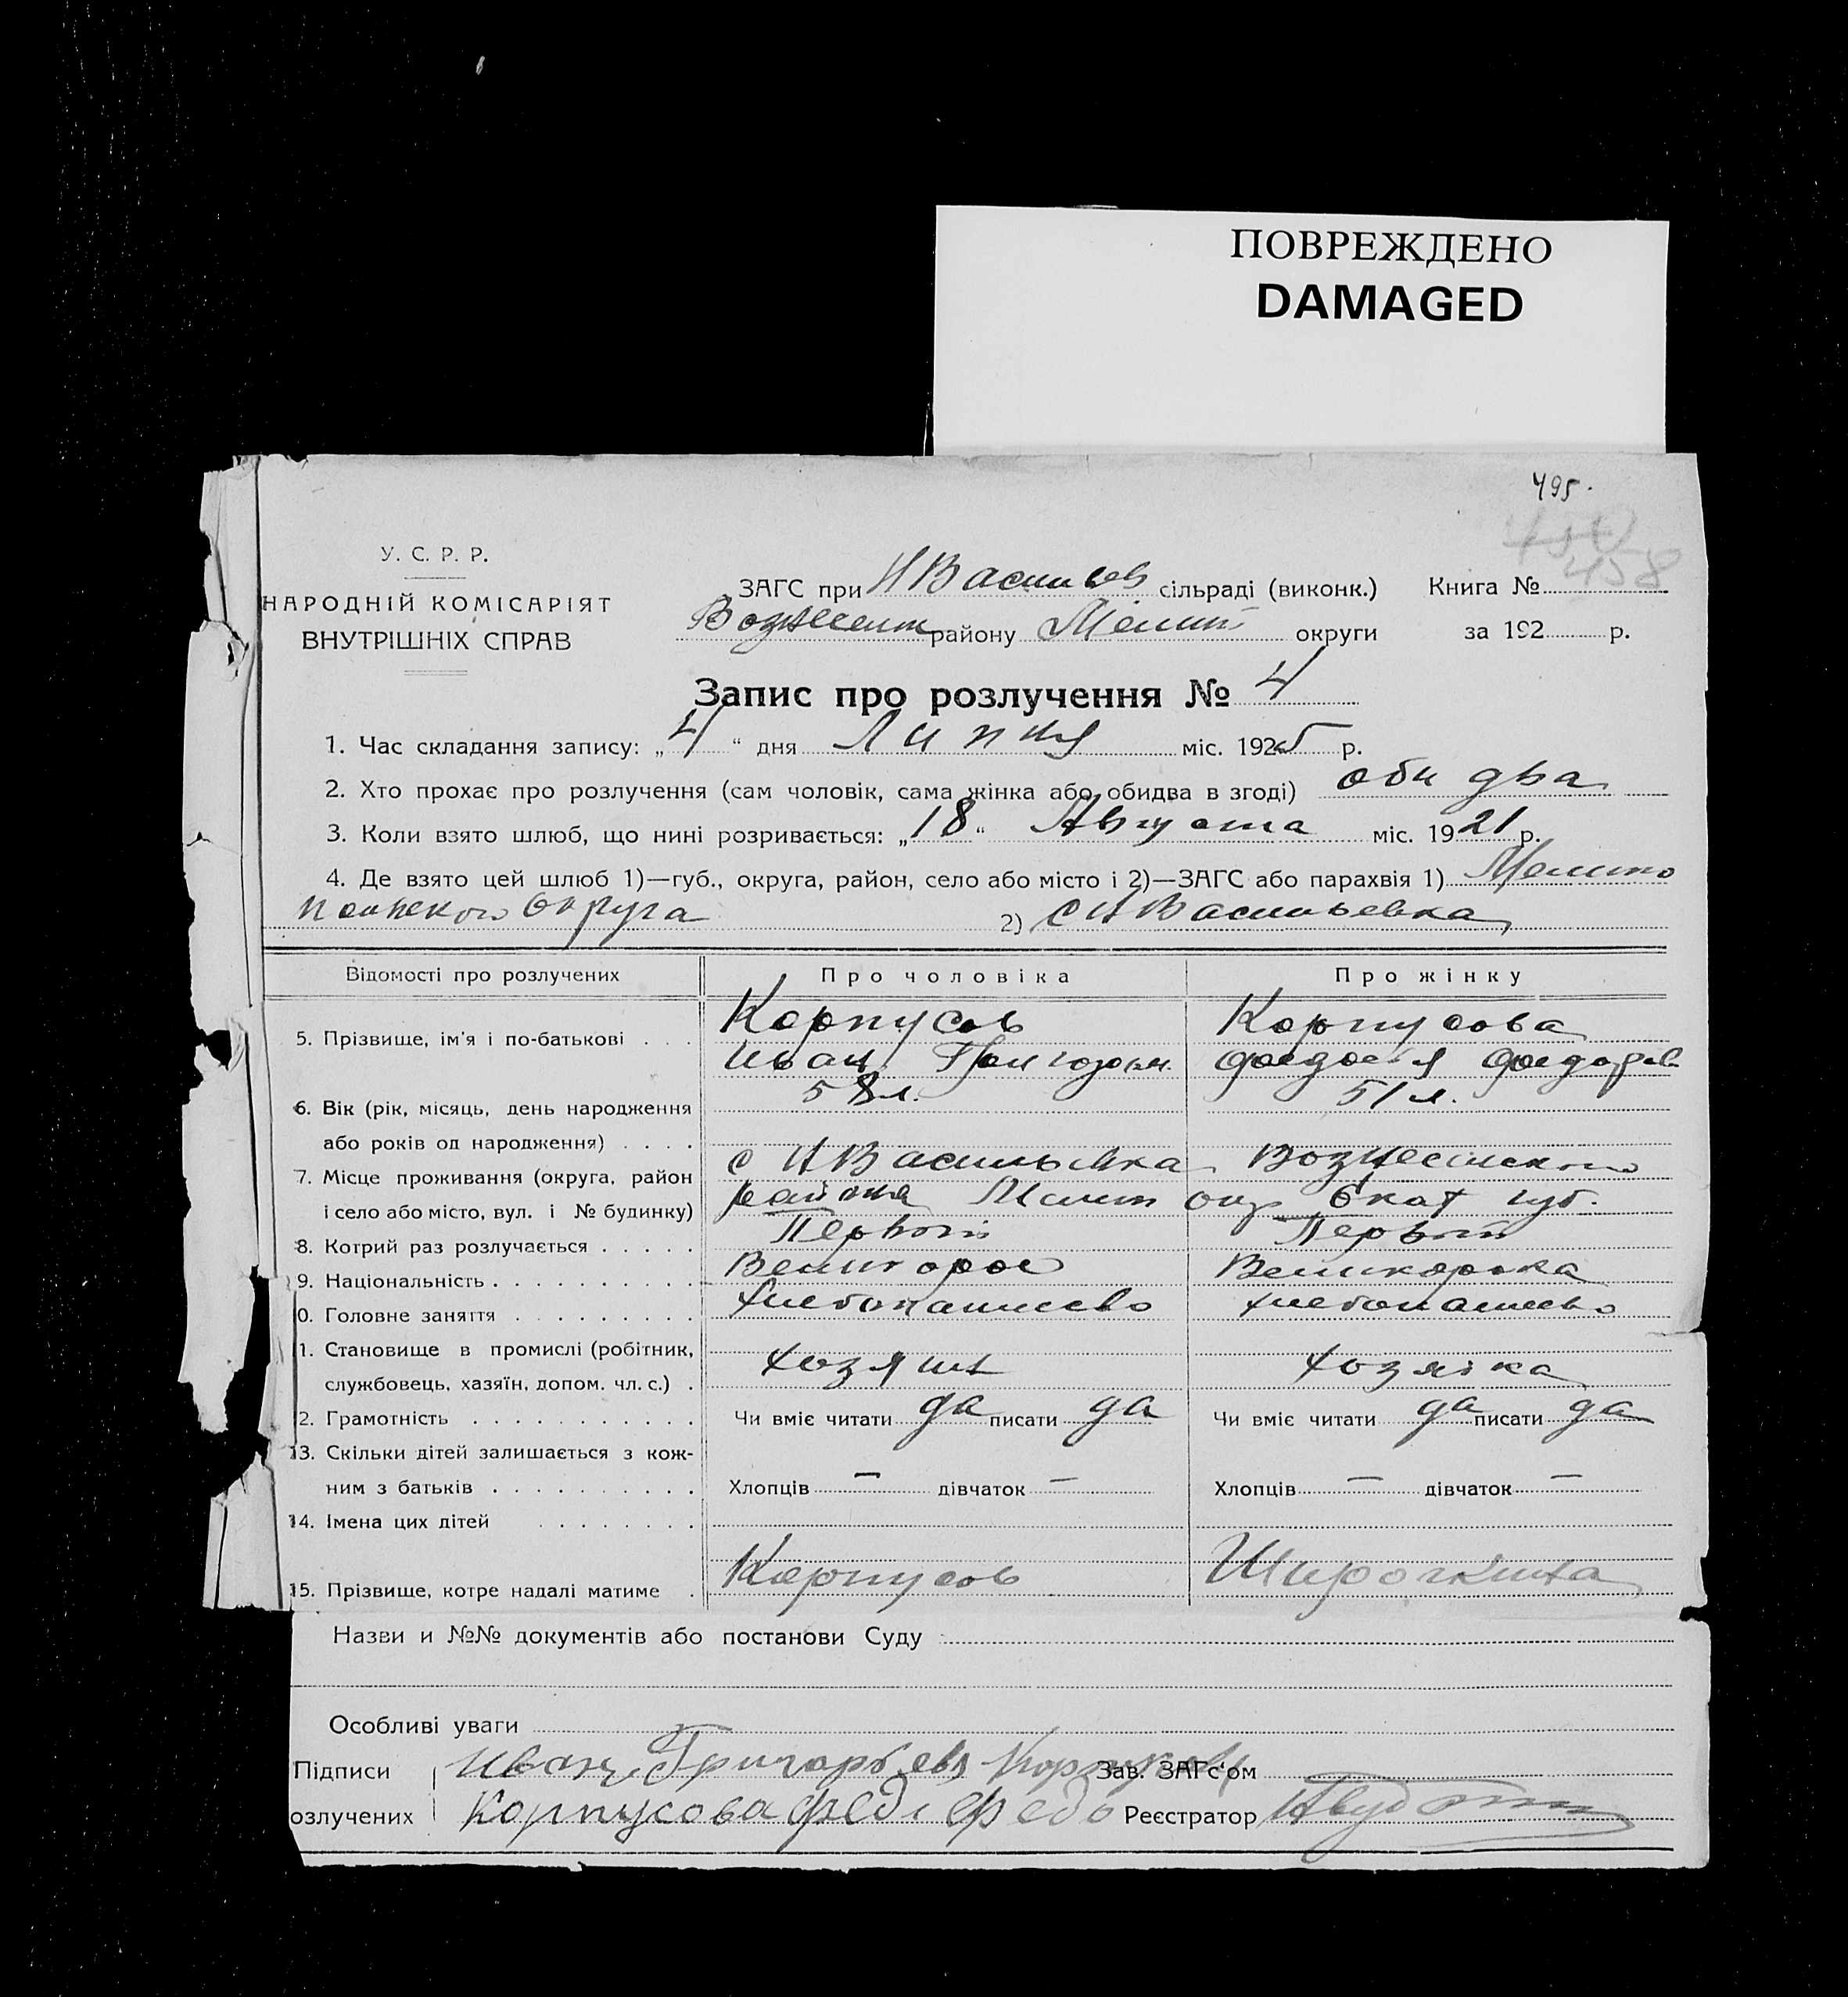 ПОВРЕЖДЕНО
DAMAGED
495.
458
У. С. Р. Р.
НАРОДНІЙ КОМІСАРІЯТ
ВНУТРІШНІХ СПРАВ
ЗАГС при Н Васильев сільраді (виконк.) Книга №
Вознесент району Мелит округи за 192 р.
Запис про розлучення № 4
1. Час складання запису: „ 4 “ дня Липня міс. 1925 р.
2. Хто прохає про розлучення (сам чоловік, сама жінка або обидва в згоді) оби два
3. Коли взято шлюб, що нині розривається: „ 18 “ Августа міс. 1921 р.
4. Де взято цей шлюб 1)—губ., округа, район, село або місто і 2)—ЗАГС або парахвія 1) Мелито
польского Округа 2) С Н Васильевка
Відомості про розлучених Про чоловіка Про жінку
5. Прізвище, ім'я і по-батькові . . . Корпусов Корпусова
Иван Григорьи. Федосия Федоров
6. Вік (рік, місяць, день народження 58 л. 51 л.
або років од народження) . . . .
7. Місце проживання (округа, район с Н Васильевка Вознесенского
і село або місто, вул. і № будинку) района Мелит окр Екат губ.
8. Котрий раз розлучається . . . . . Первый Первый
9. Національність . . . . . . . . . . Великорос Великороска
0. Головне заняття . . . . . . . . . Хлебопашесво Хлебопашесво
1. Становище в промислі (робітник,
службовець, хазяїн, допом. чл. с.) . Хозяин Хозяйка
2. Грамотність . . . . . . . . . . . Чи вміє читати да писати да Чи вміє читати да писати да
13. Скільки дітей залишається з кож-
ним з батьків . . . . . . . . . . Хлопців — дівчаток — Хлопців — дівчаток —
14. Імена цих дітей . . . . . . . .
15. Прізвище, котре надалі матиме . Корпусов Широчкина
Назви и №№ документів або постанови Суду
Особливі уваги
Підписи Иван Григорьевъ Корпусов Зав. ЗАГс'ом
озлучених Корпусова Феді Федо Реєстратор